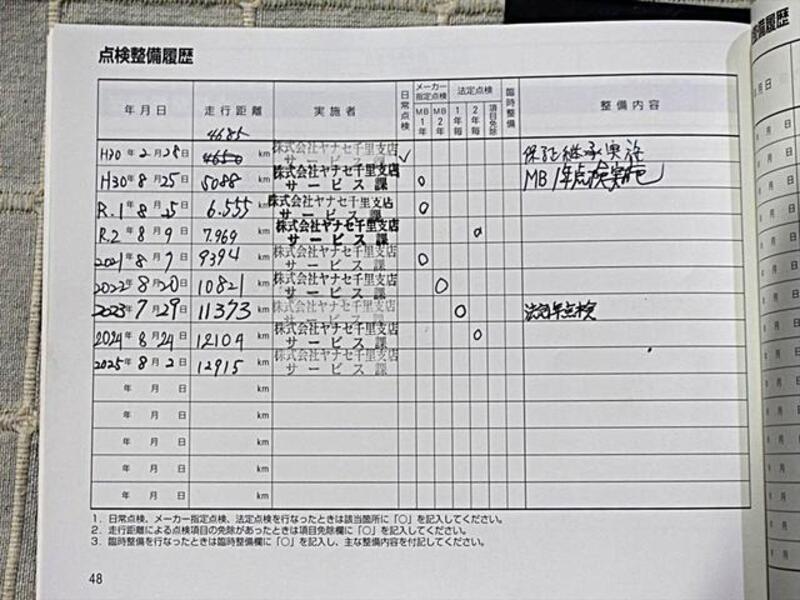 点検整備履歴
年月日 走行距離 実施者 日常点検 メーカー指定点検 MB1年 MB2年 法定点検 1年毎 2年毎 項目免除 臨時整備 整備内容
4685
H30年2月28日 4650 km 株式会社ヤナセ千里支店 サービス課 ✓ 保証継承実施
H30年8月25日 5088 km 株式会社ヤナセ千里支店 サービス課 ○ MB1年点検実施
R.1年8月25日 6.555 km 株式会社ヤナセ千里支店 サービス課 ○
R.2年8月9日 7.969 km 株式会社ヤナセ千里支店 サービス課 ○
2021年8月7日 9394 km 株式会社ヤナセ千里支店 サービス課 ○
2022年8月20日 10821 km 株式会社ヤナセ千里支店 サービス課 ○
2023年7月29日 11373 km 株式会社ヤナセ千里支店 サービス課 ○ 法定1年点検
2024年8月24日 12104 km 株式会社ヤナセ千里支店 サービス課 ○
2025年8月2日 12915 km 株式会社ヤナセ千里支店 サービス課
年 月 日 km
年 月 日 km
年 月 日 km
年 月 日 km
年 月 日 km
1. 日常点検、メーカー指定点検、法定点検を行なったときは該当箇所に「○」を記入してください。
2. 走行距離による点検項目の免除があったときは項目免除欄に「○」を記入してください。
3. 臨時整備を行なったときは臨時整備欄に「○」を記入し、主な整備内容を付記してください。
48